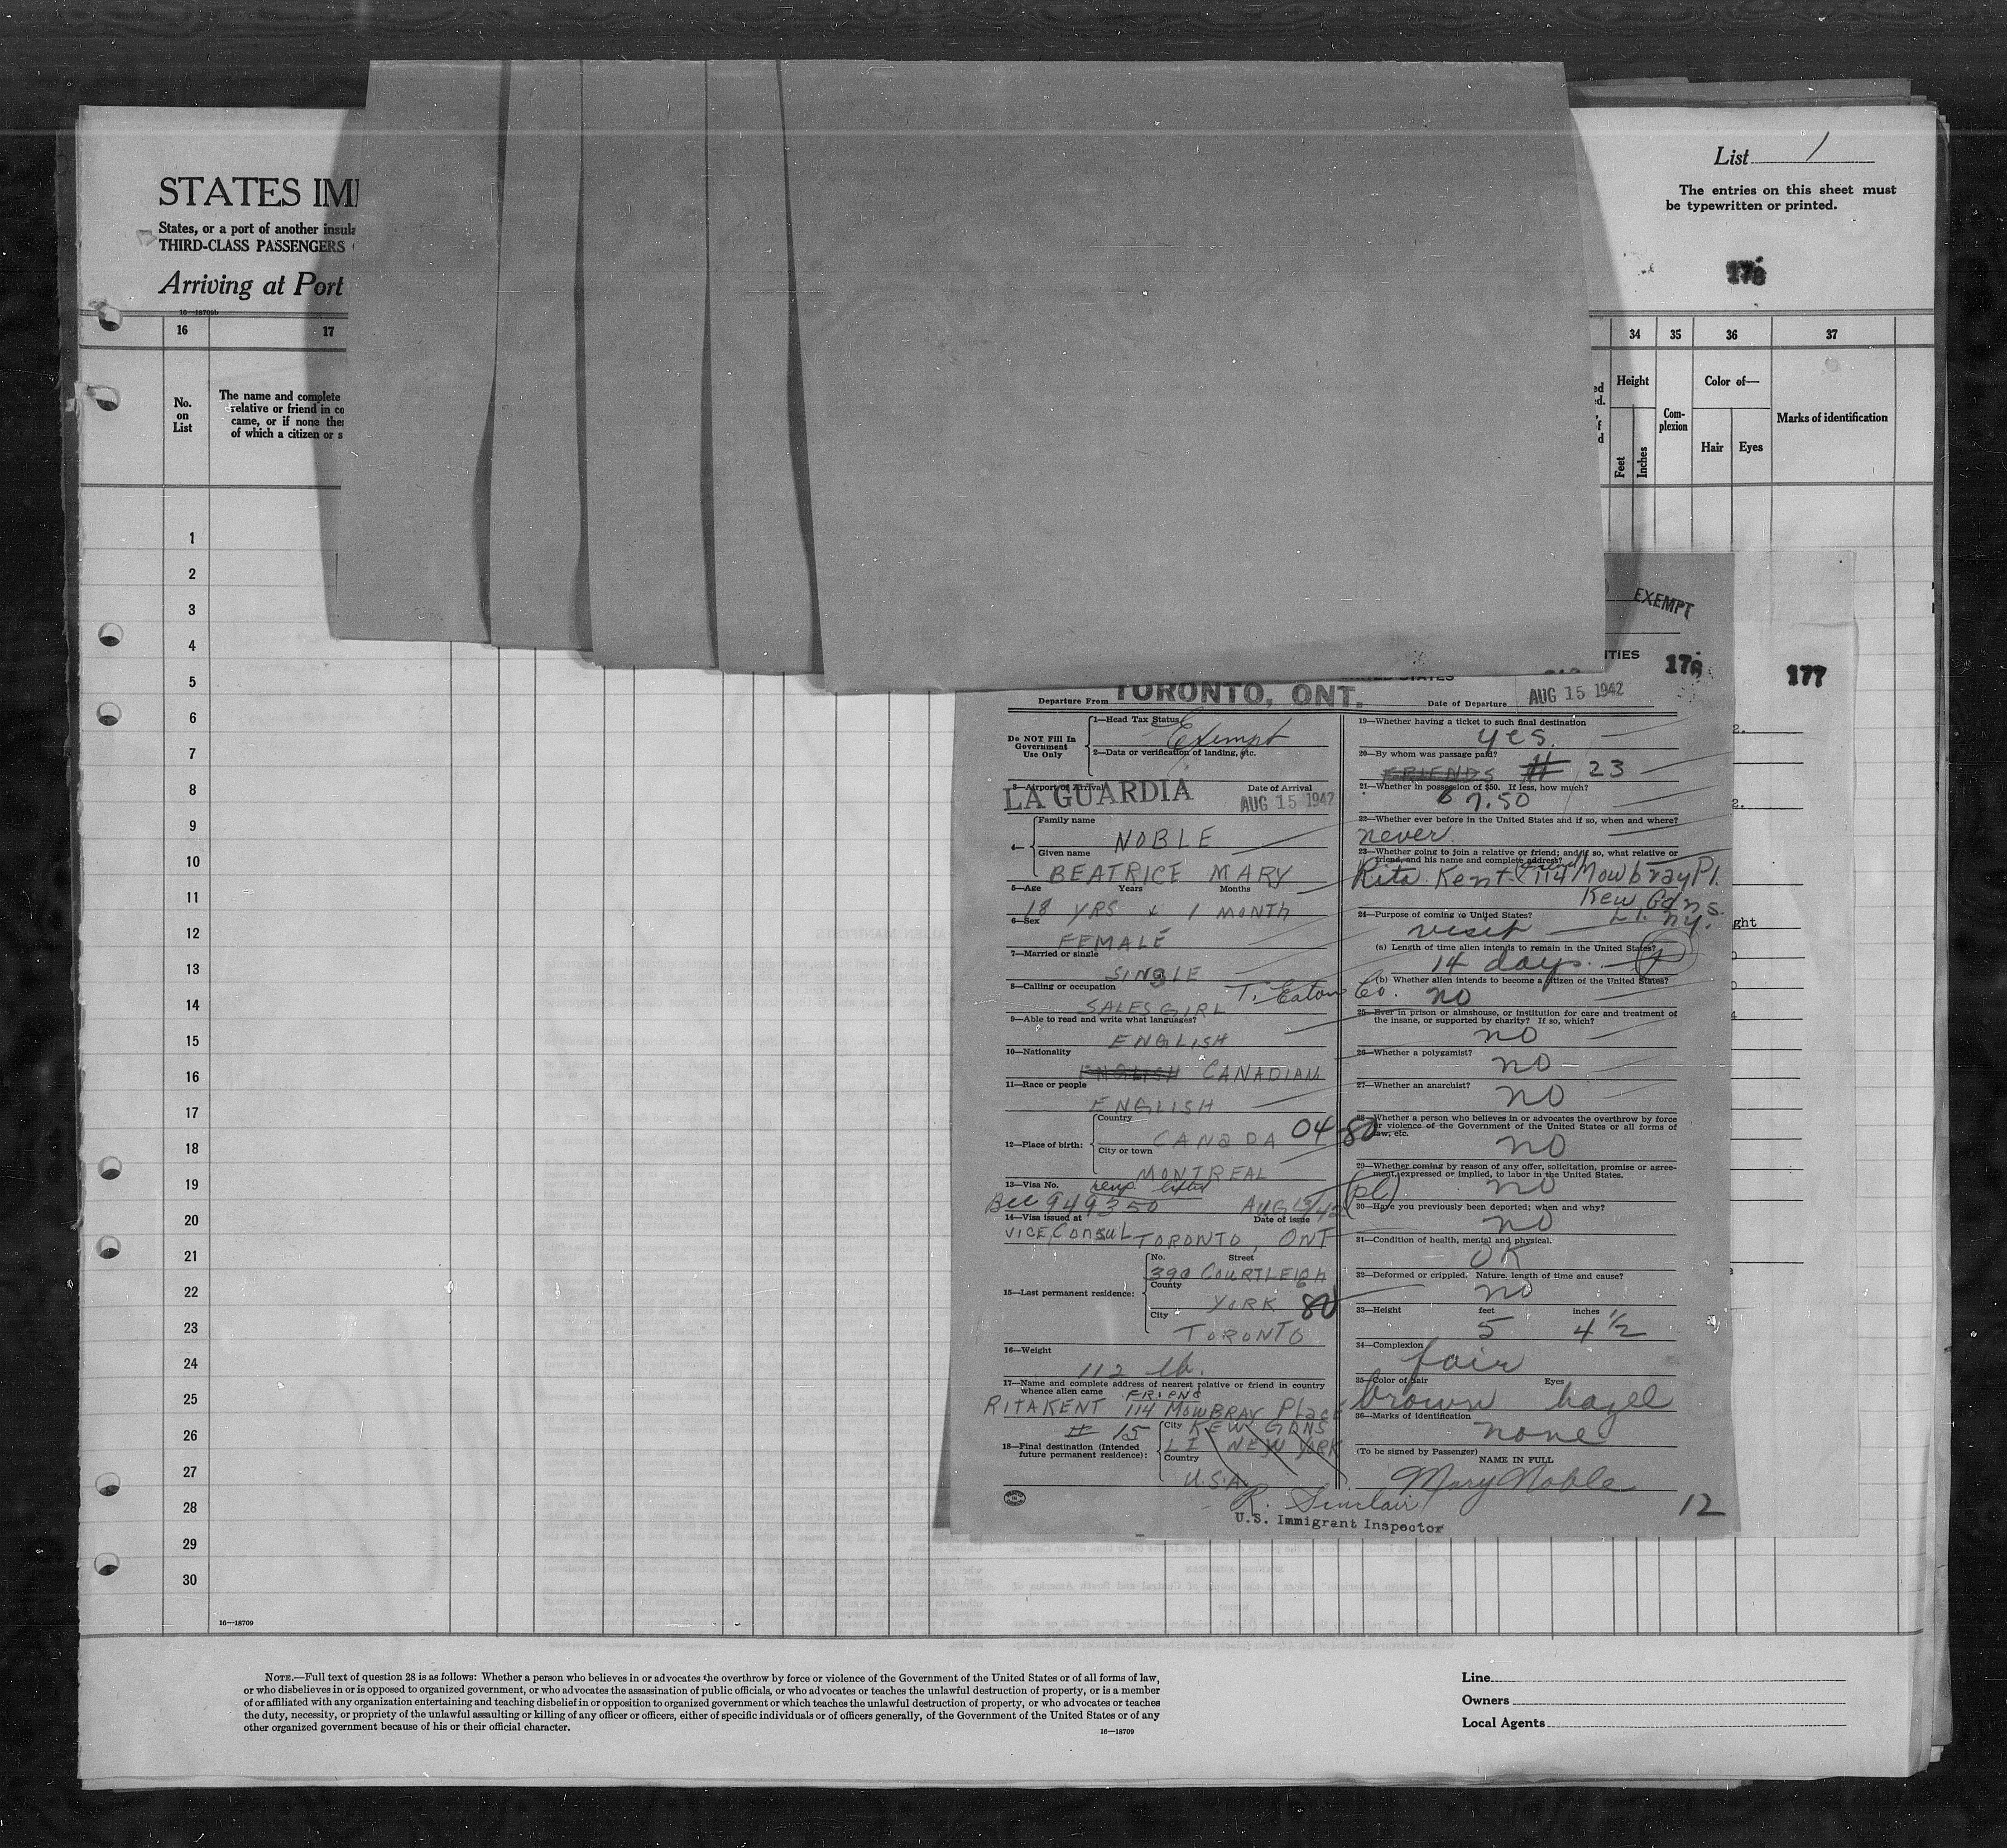 List 1
The entries on this sheet must
be typewritten or printed.
STATES IM
States, or a port of another insula
THIRD-CLASS PASSENGERS
Arriving at Port
16—18709b
16 17 34 35 36 37
No.
on
List
The name and complete
relative or friend in co
came, or if none the
of which a citizen or s
Height
Feet
Inches
Com-
plexion
Color of—
Hair Eyes
Marks of identification
1
2
3
4
5
6
7
8
9
10
11
12
13
14
15
16
17
18
19
20
21
22
23
24
25
26
27
28
29
30
16—18709
EXEMPT
ITIES
177
Departure From TORONTO, ONT.
Date of Departure AUG 15 1942
Do NOT Fill In
Government
Use Only
1—Head Tax Status
Exempt
2—Data or verification of landing, etc.
3—Airport of Arrival Date of Arrival
LA GUARDIA AUG 15 1942
4—
Family name
NOBLE
Given name
BEATRICE MARY
5—Age Years Months
18 YRS & 1 MONTH
6—Sex
FEMALE
7—Married or single
SINGLE
8—Calling or occupation
SALES GIRL T. Eaton Co.
9—Able to read and write what languages?
ENGLISH
10—Nationality
ENGLISH CANADIAN
11—Race or people
ENGLISH
12—Place of birth:
Country
CANADA 04-80
City or town
MONTREAL
13—Visa No.
BCC 949350 AUG 15/42
14—Visa issued at Date of issue
VICE CONSUL TORONTO, ONT
15—Last permanent residence:
No. Street
390 COURTLEIGH
County
YORK 80
City
TORONTO
16—Weight
112 lb.
17—Name and complete address of nearest relative or friend in country
whence alien came FRIEND
RITA KENT 114 MOWBRAY Place
# 15
18—Final destination (Intended
future permanent residence):
City KEW GDNS
LI NEW YORK
Country
U.S.A.
19—Whether having a ticket to such final destination
yes.
20—By whom was passage paid?
FRIENDS # 23
21—Whether in possession of $50. If less, how much?
67.50
22—Whether ever before in the United States and if so, when and where?
never
23—Whether going to join a relative or friend; and if so, what relative or
friend, and his name and complete address?
Rita Kent (friend) 114 Mowbray Pl.
Kew Gdns.
L.I. N.Y.
24—Purpose of coming to United States?
visit
(a) Length of time alien intends to remain in the United States?
14 days.
(b) Whether alien intends to become a citizen of the United States?
no
25—Ever in prison or almshouse, or institution for care and treatment of
the insane, or supported by charity? If so, which?
no
26—Whether a polygamist?
no
27—Whether an anarchist?
no
28—Whether a person who believes in or advocates the overthrow by force
or violence of the Government of the United States or all forms of
law, etc.
no
29—Whether coming by reason of any offer, solicitation, promise or agree-
ment, expressed or implied, to labor in the United States.
no
(pl)
30—Have you previously been deported; when and why?
no
31—Condition of health, mental and physical.
OK
32—Deformed or crippled. Nature, length of time and cause?
no
33—Height feet inches
5 4 1/2
34—Complexion
fair
35—Color of hair Eyes
brown hazel
36—Marks of identification
none
(To be signed by Passenger)
NAME IN FULL
Mary Noble
R. Sinclair
U.S. Immigrant Inspector
12
NOTE.—Full text of question 28 is as follows: Whether a person who believes in or advocates the overthrow by force or violence of the Government of the United States or of all forms of law,
or who disbelieves in or is opposed to organized government, or who advocates the assassination of public officials, or who advocates or teaches the unlawful destruction of property, or is a member
of or affiliated with any organization entertaining and teaching disbelief in or opposition to organized government or which teaches the unlawful destruction of property, or who advocates or teaches
the duty, necessity, or propriety of the unlawful assaulting or killing of any officer or officers, either of specific individuals or of officers generally, of the Government of the United States or of any
other organized government because of his or their official character.
16—18709
Line
Owners
Local Agents